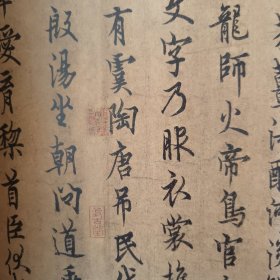 龍師火帝鳥官
文字乃服衣裳推
有虞陶唐吊民伐
殷湯坐朝問道垂
愛育黎首臣伏